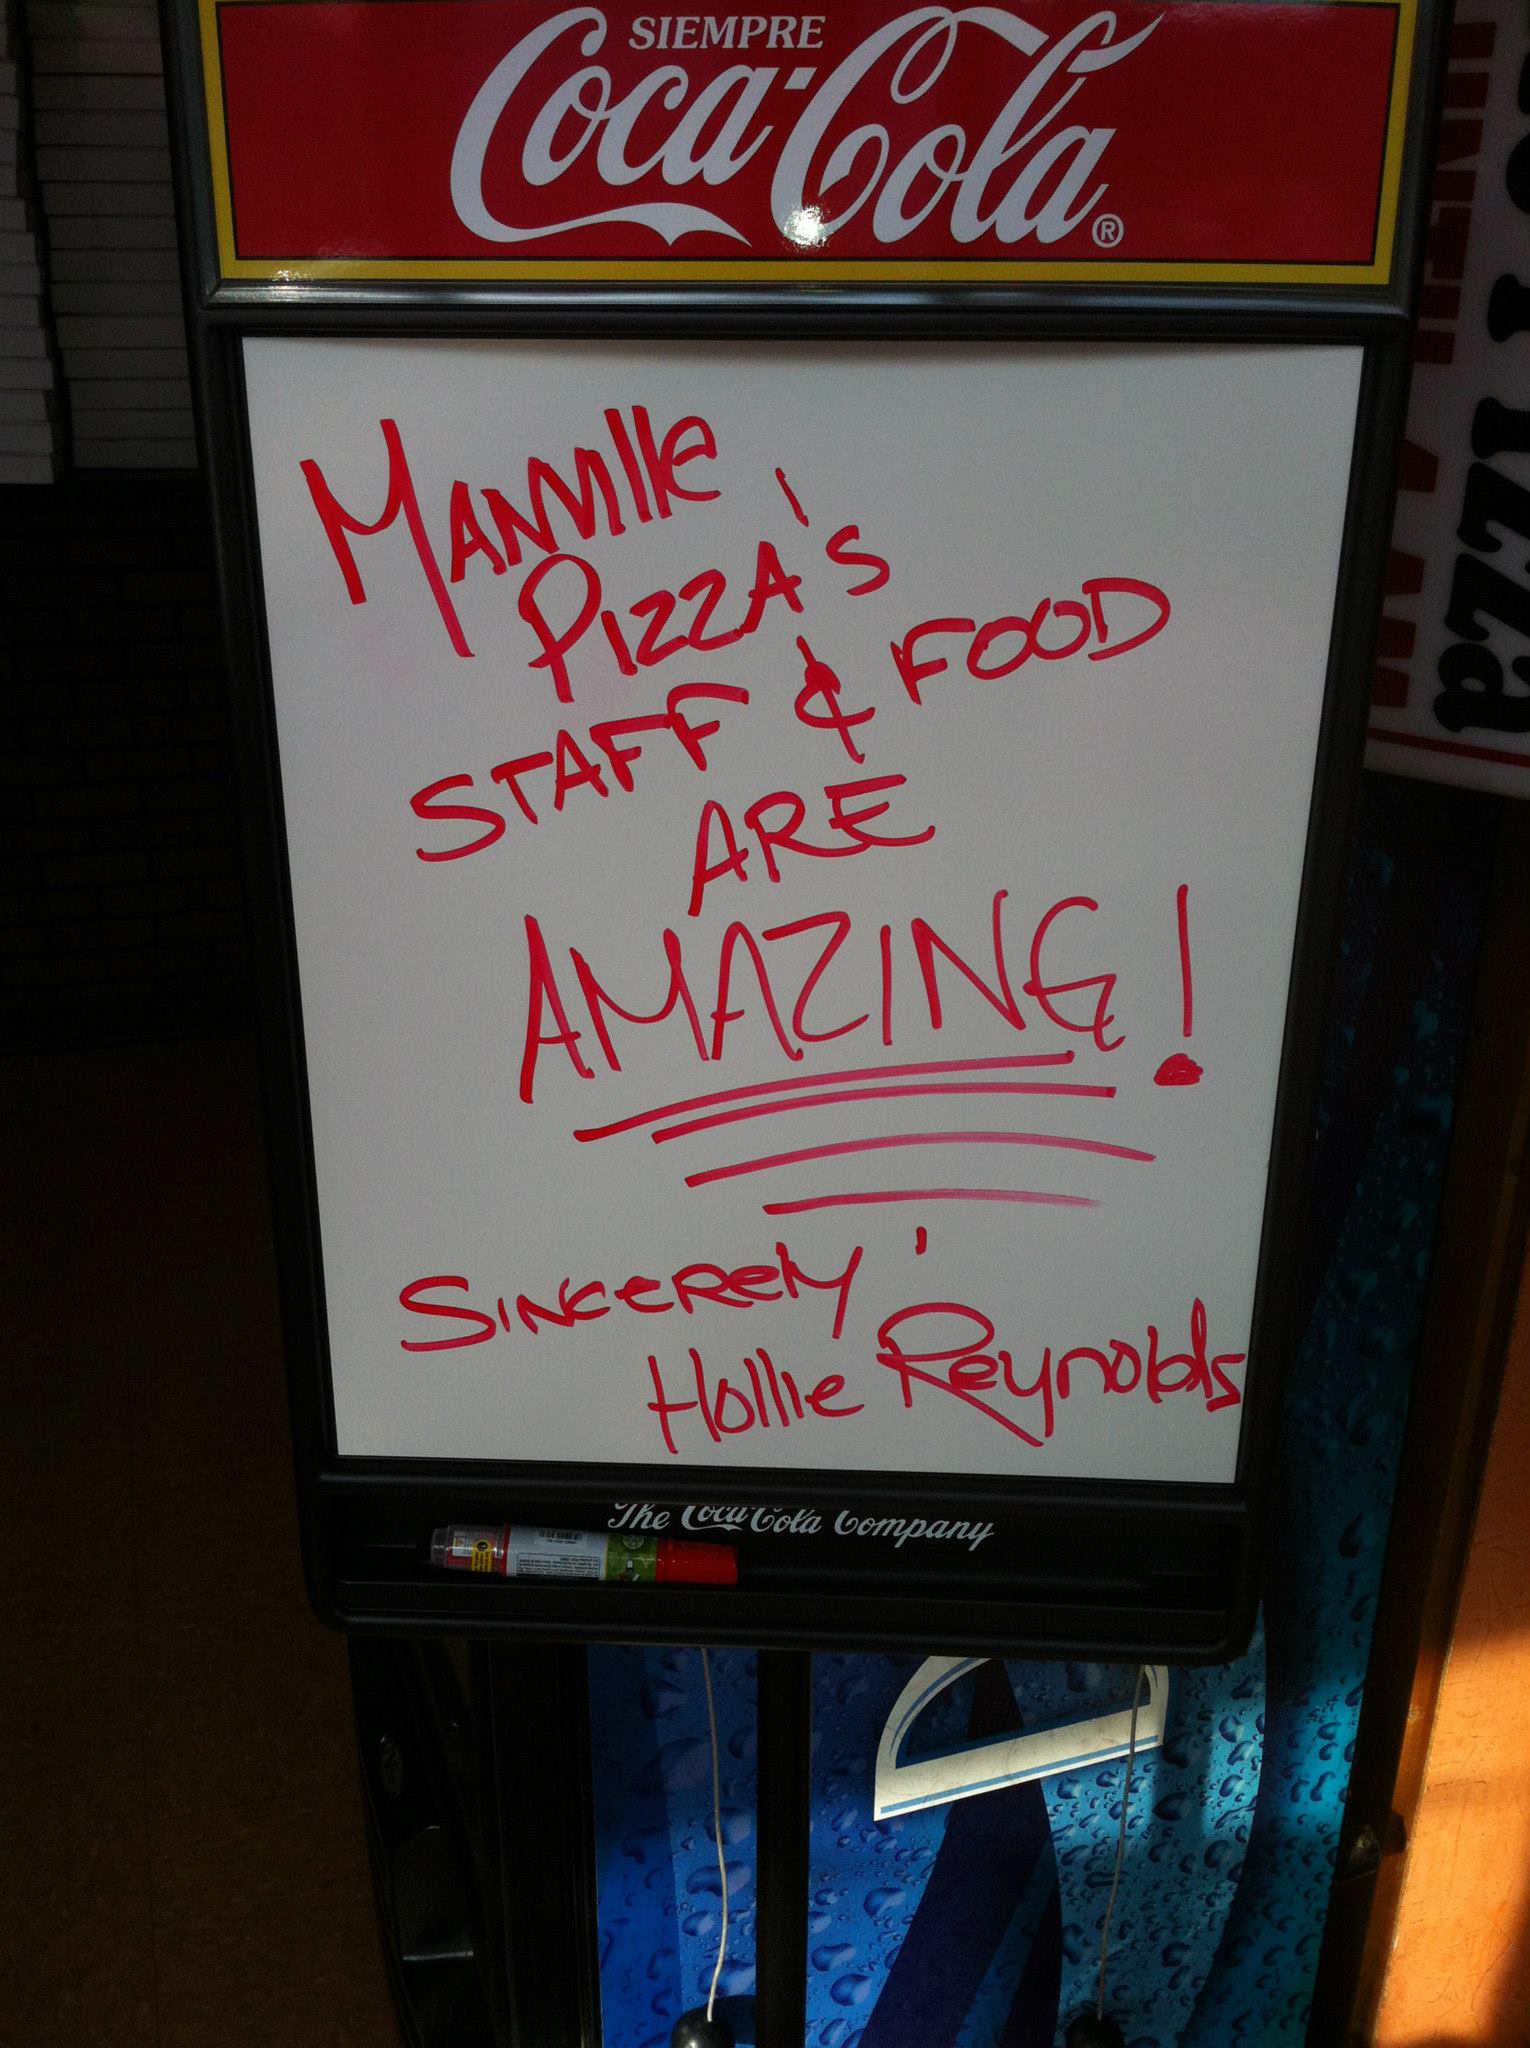 SIEMPRE
Coca-Cola®
MANVIlle
PIZZA'S
STAFF & FOOD
ARE
AMAZING!
SINCEREly'
Hollie Reynolds
The Coca-Cola Company
PIZZa